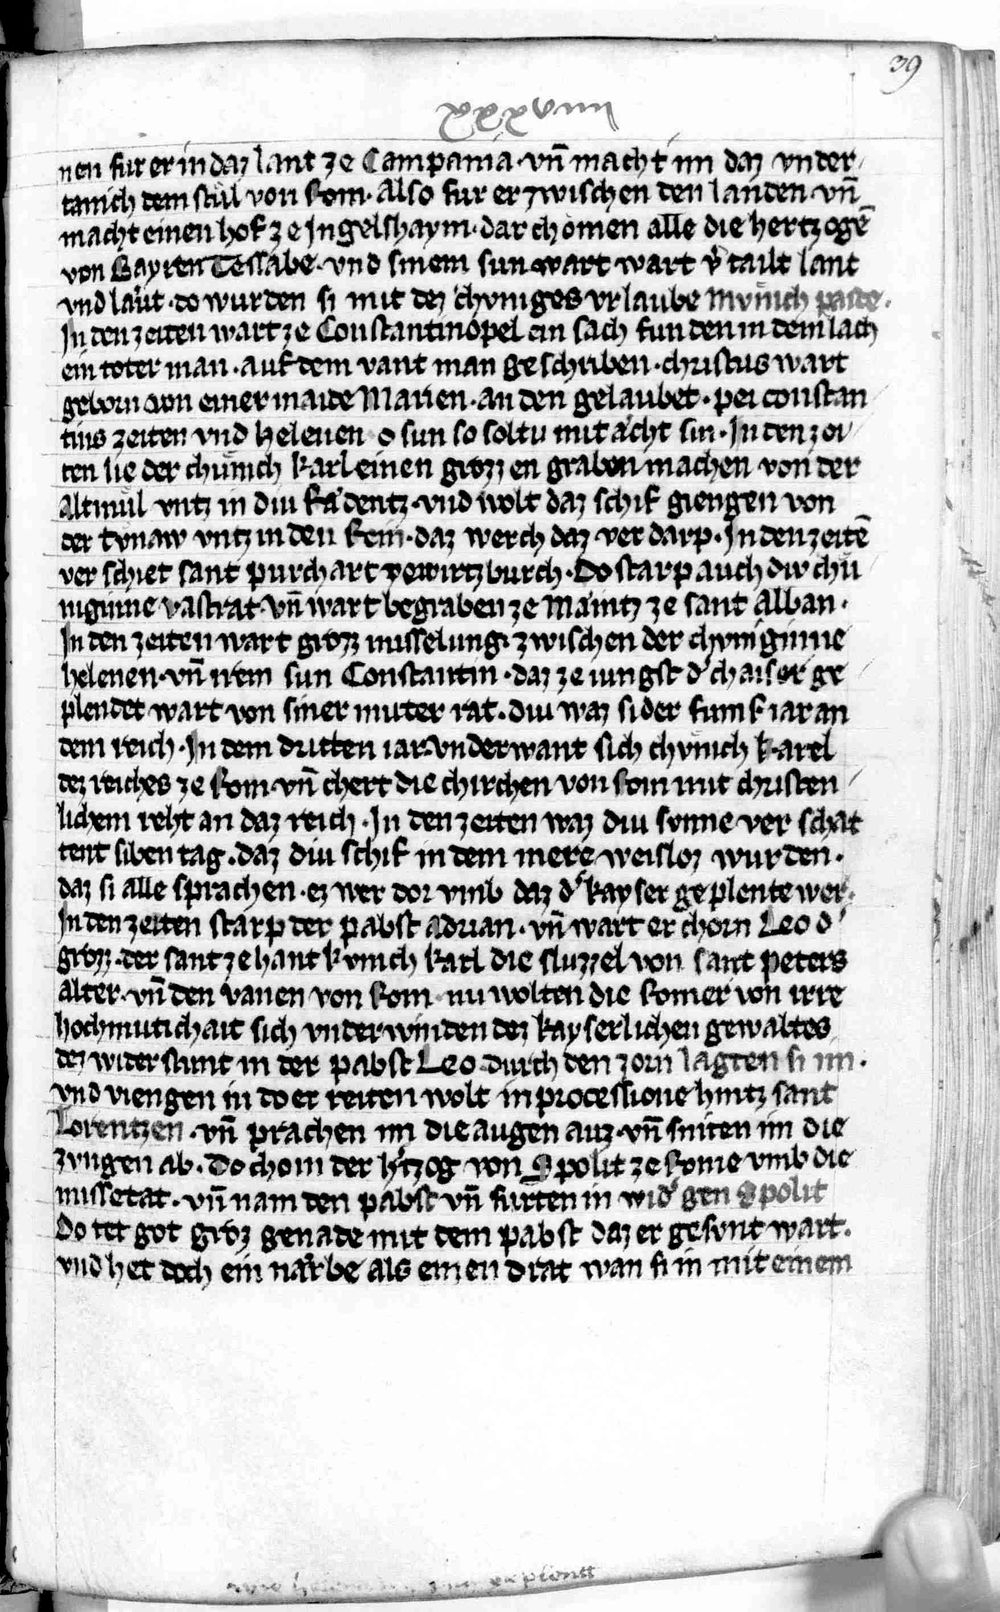 39
xxxviiii
nen fur er in daz lant ze Campania · vn̄ macht im daz vnder
tanich dem stůl von Rom · Also fur er zwischen den landen · vn̄
macht einen hof ze Jngelshaym · dar chomen alle die hertzogē
von Bayren Tessabe · vnd sinem sun wart wart v̓tailt lant
vnd laut · do wurden si mit dez chvniges vrlaube
Jn den zeiten wart ze Constantinopel ein sach funden in dem lach
ein toter man · auf dem vant man geschriben · christus wart
geborn von einer maide Marien · an den gelaubet · pei constan
tins zeiten vnd helenen o sun so soltu mit acht sin · Jn den zei
ten lie der chunich karl einen grozzen graben machen von der
altmul vntz in diu Radentz · vnd wolt daz schif giengen von
der tvnaw vntz in den Rein · daz werch daz verdarp · Jn den zeitē
verschiet sant purchart ze wirtzburch · Do starp auch diw chu
niginne vastrat · vn̄ wart begraben ze Maintz ze sant Alban ·
Jn den zeiten wart grozz misselung zwischen der chvniginne
helenen · vn̄ irem sun Constantin · daz ze iungst d̓ chaiser ge
plendet wart von siner muter rat · diu waz sider fumf iar an
dem reich · Jn dem dritten iar vnderwant sich chvnich karel
dez reiches ze Rom · vn̄ chert die chirchen von Rom mit christen
lichem reht an daz reich · Jn den zeiten waz diu sonne verschat
tent siben tag · daz diu schif in dem mere weisloz wurden ·
daz si alle sprachen · ez wer dor vmb daz d̓ kayser geplente wer ·
Jn den zeiten starp der pabst adrian · vn̄ wart erchorn Leo d̓
grozz · der sant zehant kvnich karl die sluzzel von sant peters
alter · vn̄ den vanen von Rom · nu wolten die Romer von irre
hochmutichait sich vnderwinden dez kayserlichen gewaltes
dez widerstunt in der pabst Leo durch den zorn lagten si im ·
vnd viengen in do er reiten wolt in processione hintz sant
Lorentzen · vn̄ prachen im die augen auz · vn̄ sniten im die
zvngen ab · Do chom der h̓tzog von Spolit ze Rome vmb die
missetat · vn̄ nam den pabst vn̄ furten in wid̓ gen Spolit
Do tet got groz genade mit dem pabst daz er gesvnt wart ·
vnd het doch ein narbe als einen drat wan si in mit einem